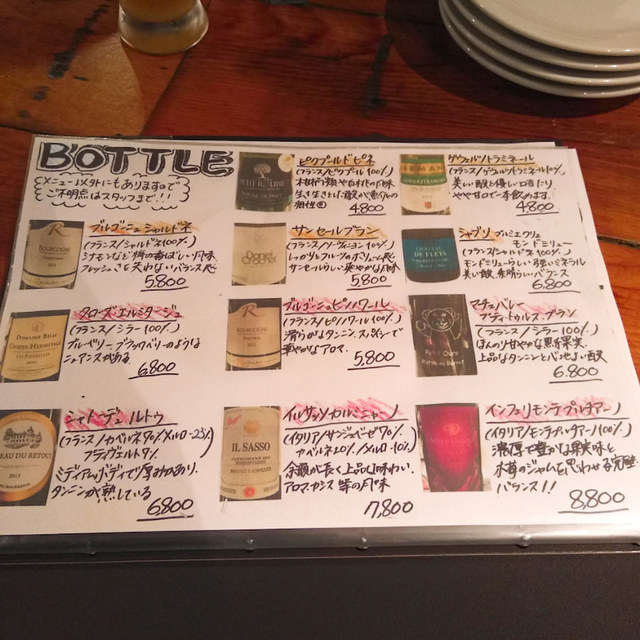 BOTTLE
メニュー以外にもありますので
ご不明点はスタッフまで!!
ピクプールドピネ
(フランス/ピクプール100%)
相性◎
4800
ゲヴェルツトラミネール
(フランス/ゲヴェルツトラミネール100%)
美しい酸と優しい口当たり
4800
ブルゴーニュシャルドネ
(フランス/シャルドネ100%)
フレッシュさも失わないバランス感
5.800
サンセールブラン
(フランス/ソーヴィニヨン100%)
サンセールらしい爽やかな風味
5.800
シャブリ プルミエクリュ
モンドミリュー
(フランス/シャルドネ100%)
モンドミリューらしい強いミネラル
美しい酸、素晴らしいバランス
6.800
クローズエルミタージュ
(フランス/シラー100%)
ブルーベリー、ブラックベリーのような
ニュアンスがある
6.800
ブルゴーニュピノノワール
(フランス/ピノノワール100%)
滑らかなタンニン、スパイシーで
華やかなアロマ
5.800
(フランス/シラー100%)
ほんのり甘やかな黒系果実、
上品なタンニンと心地よい酸
6.800
シャトーデュルトゥ
(フランス/カベルネ70%/メルロー23%/
プティヴェルド7%)
ミディアムボディで厚みがあり、
タンニンが熟している
6.800
IL SASSO
イルサッソカルミニャーノ
(イタリア/サンジョベーゼ70%
カベルネ20%/メルロー10%)
余韻が長く上品な味わい、
アロマ、カシス等の風味
7,800
インフェリモンテプルチアーノ
(イタリア/モンテプルチアーノ100%)
濃厚で豊かな果実味と
木苺のジャムを思わせる
バランス!!
8,800